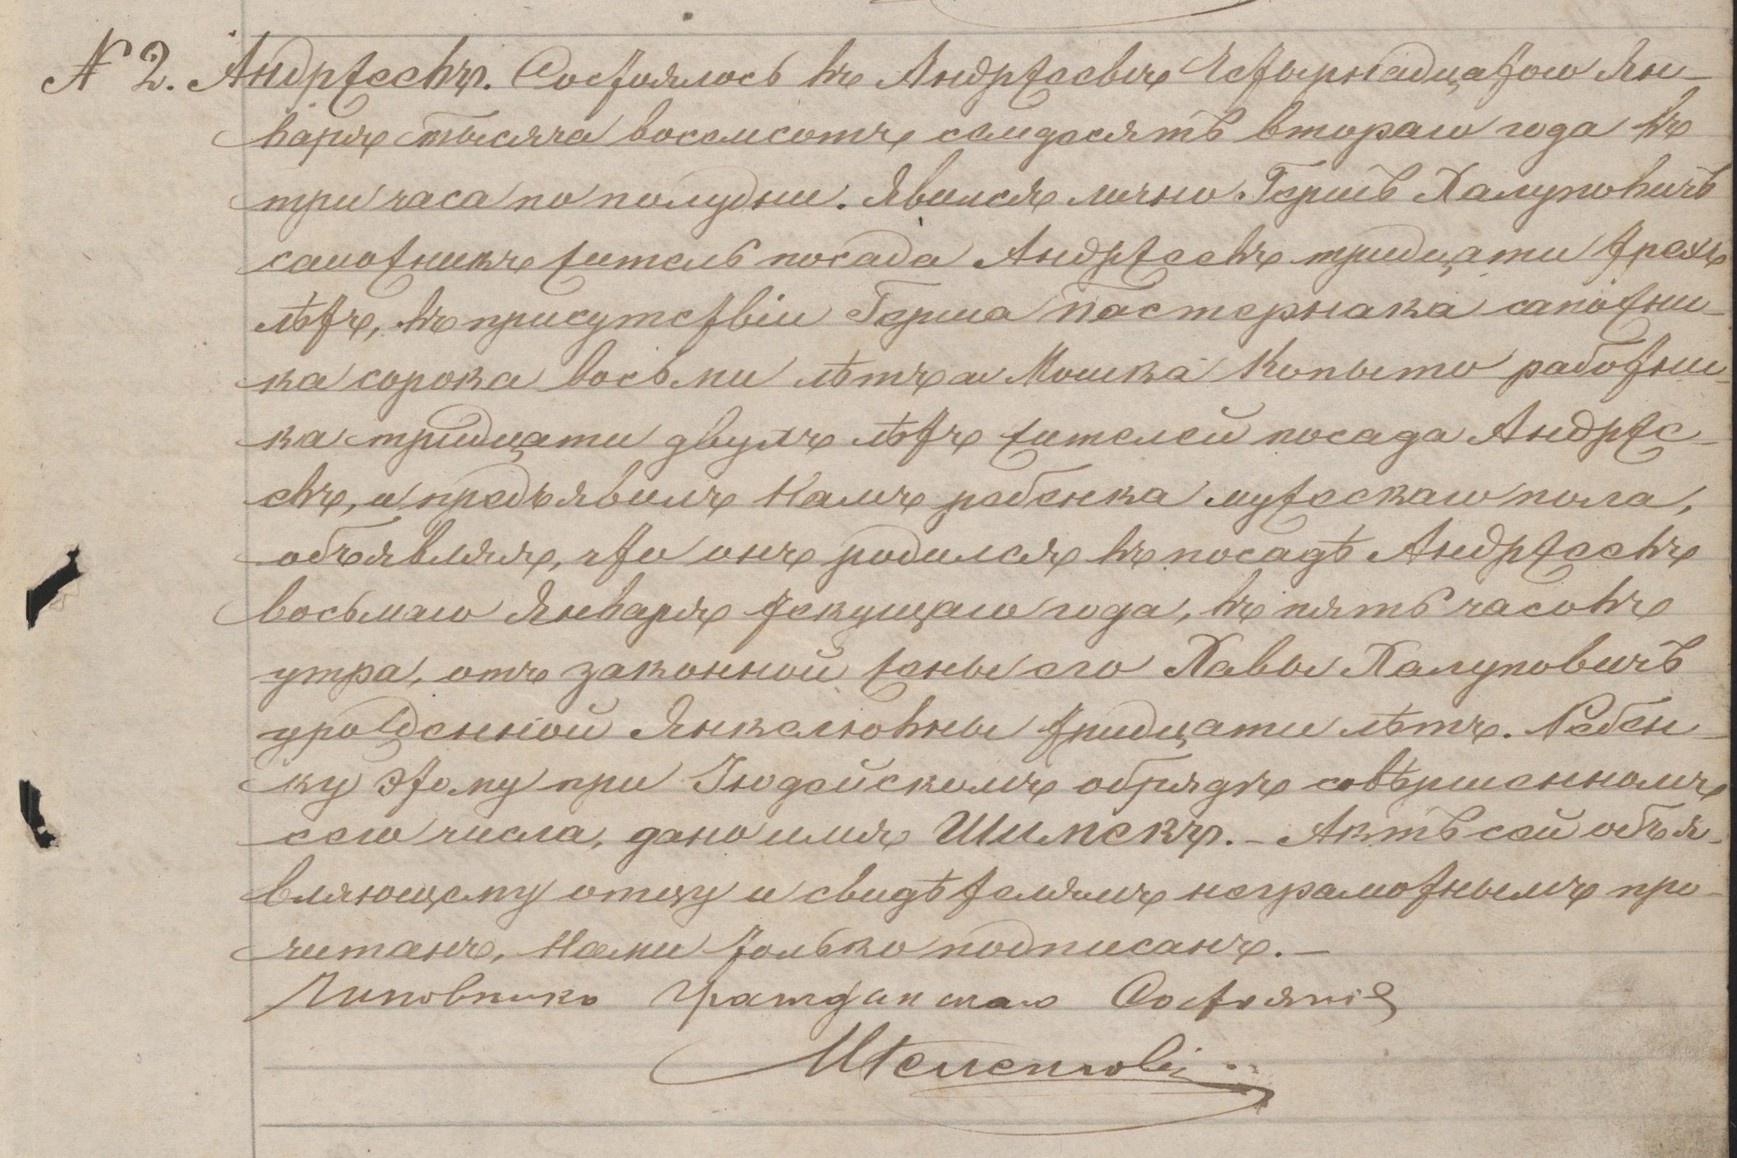 № 2. Андржеевъ. Состоялось въ Андржеевѣ Четырнадцатого Ян-
варя тысяча восемсотъ семдесятъ втораго года въ
три часа по полудни. Явился лично Гершъ Халуповичъ
сапожникъ житель посада Андржеевъ тридцати трехъ
лѣтъ, въ присутствіи Герша Пастернака сапожни-
ка сорока восьми лѣтъ и Мошка Копыто работни-
ка тридцати двухъ лѣтъ жителей посада Андрже-
евъ, и предъявилъ Намъ ребенка мужескаго пола,
объявляя, что онъ родился въ посадѣ Андржеевъ
восьмаго Января текущаго года, въ пять часовъ
утра, отъ законной жены его Хавы Халуповичъ
урожденной Янкелювны тридцати лѣтъ. Ребен-
ку этому при Іюдейскомъ обрядѣ совершенномъ
сего числа, дано имя Шимекъ. - Актъ сей объя-
вляющему отцу и свидѣтелямъ неграмотнымъ про-
читанъ, Нами только подписанъ. -
Чиновникъ Гражданскаго Состоянія